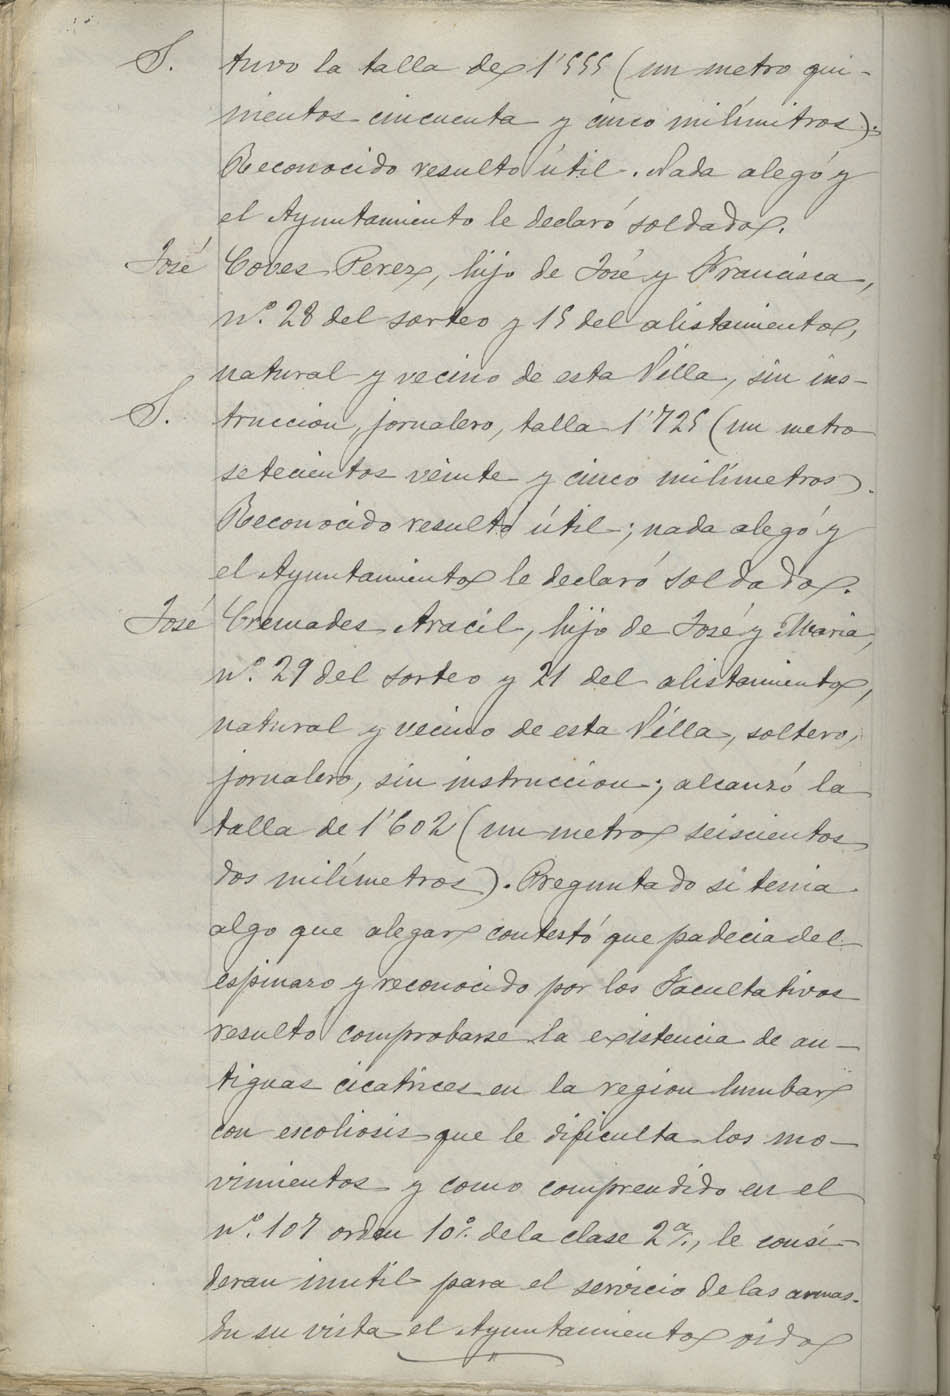 S. tuvo la talla de 1'555 (un metro qui-
nientos cincuenta y cinco milímitros).
Reconocido resultó útil. Nada alegó y
el Ayuntamiento le declaró soldado.
José Coves Perez, hijo de José y Francisca,
nº. 28 del sorteo y 15 del alistamiento,
natural y vecino de esta Villa, sin ins-
S. truccion, jornalero, talla 1'725 (un metro
setecientos veinte y cinco milímetros).
Reconocido resultó útil; nada alegó y
el Ayuntamiento le declaró soldado.
José Cremades Aracil, hijo de José y Maria,
nº. 29 del sorteo y 21 del alistamiento,
natural y vecino de esta Villa, soltero,
jornalero, sin instruccion; alcanzó la
talla de 1'602 (un metro seiscientos
dos milímetros). Preguntado si tenia
algo que alegar contestó que padecia del
espinazo y reconocido por los Facultativos
resultó comprobarse la existencia de an-
tiguas cicatrices en la region lumbar
con escoliosis que le dificulta los mo-
vimientos y como comprendido en el
nº. 107 orden 10º. de la clase 2ª., le consi-
deran inutil para el servicio de las armas.
En su vista el Ayuntamiento oido